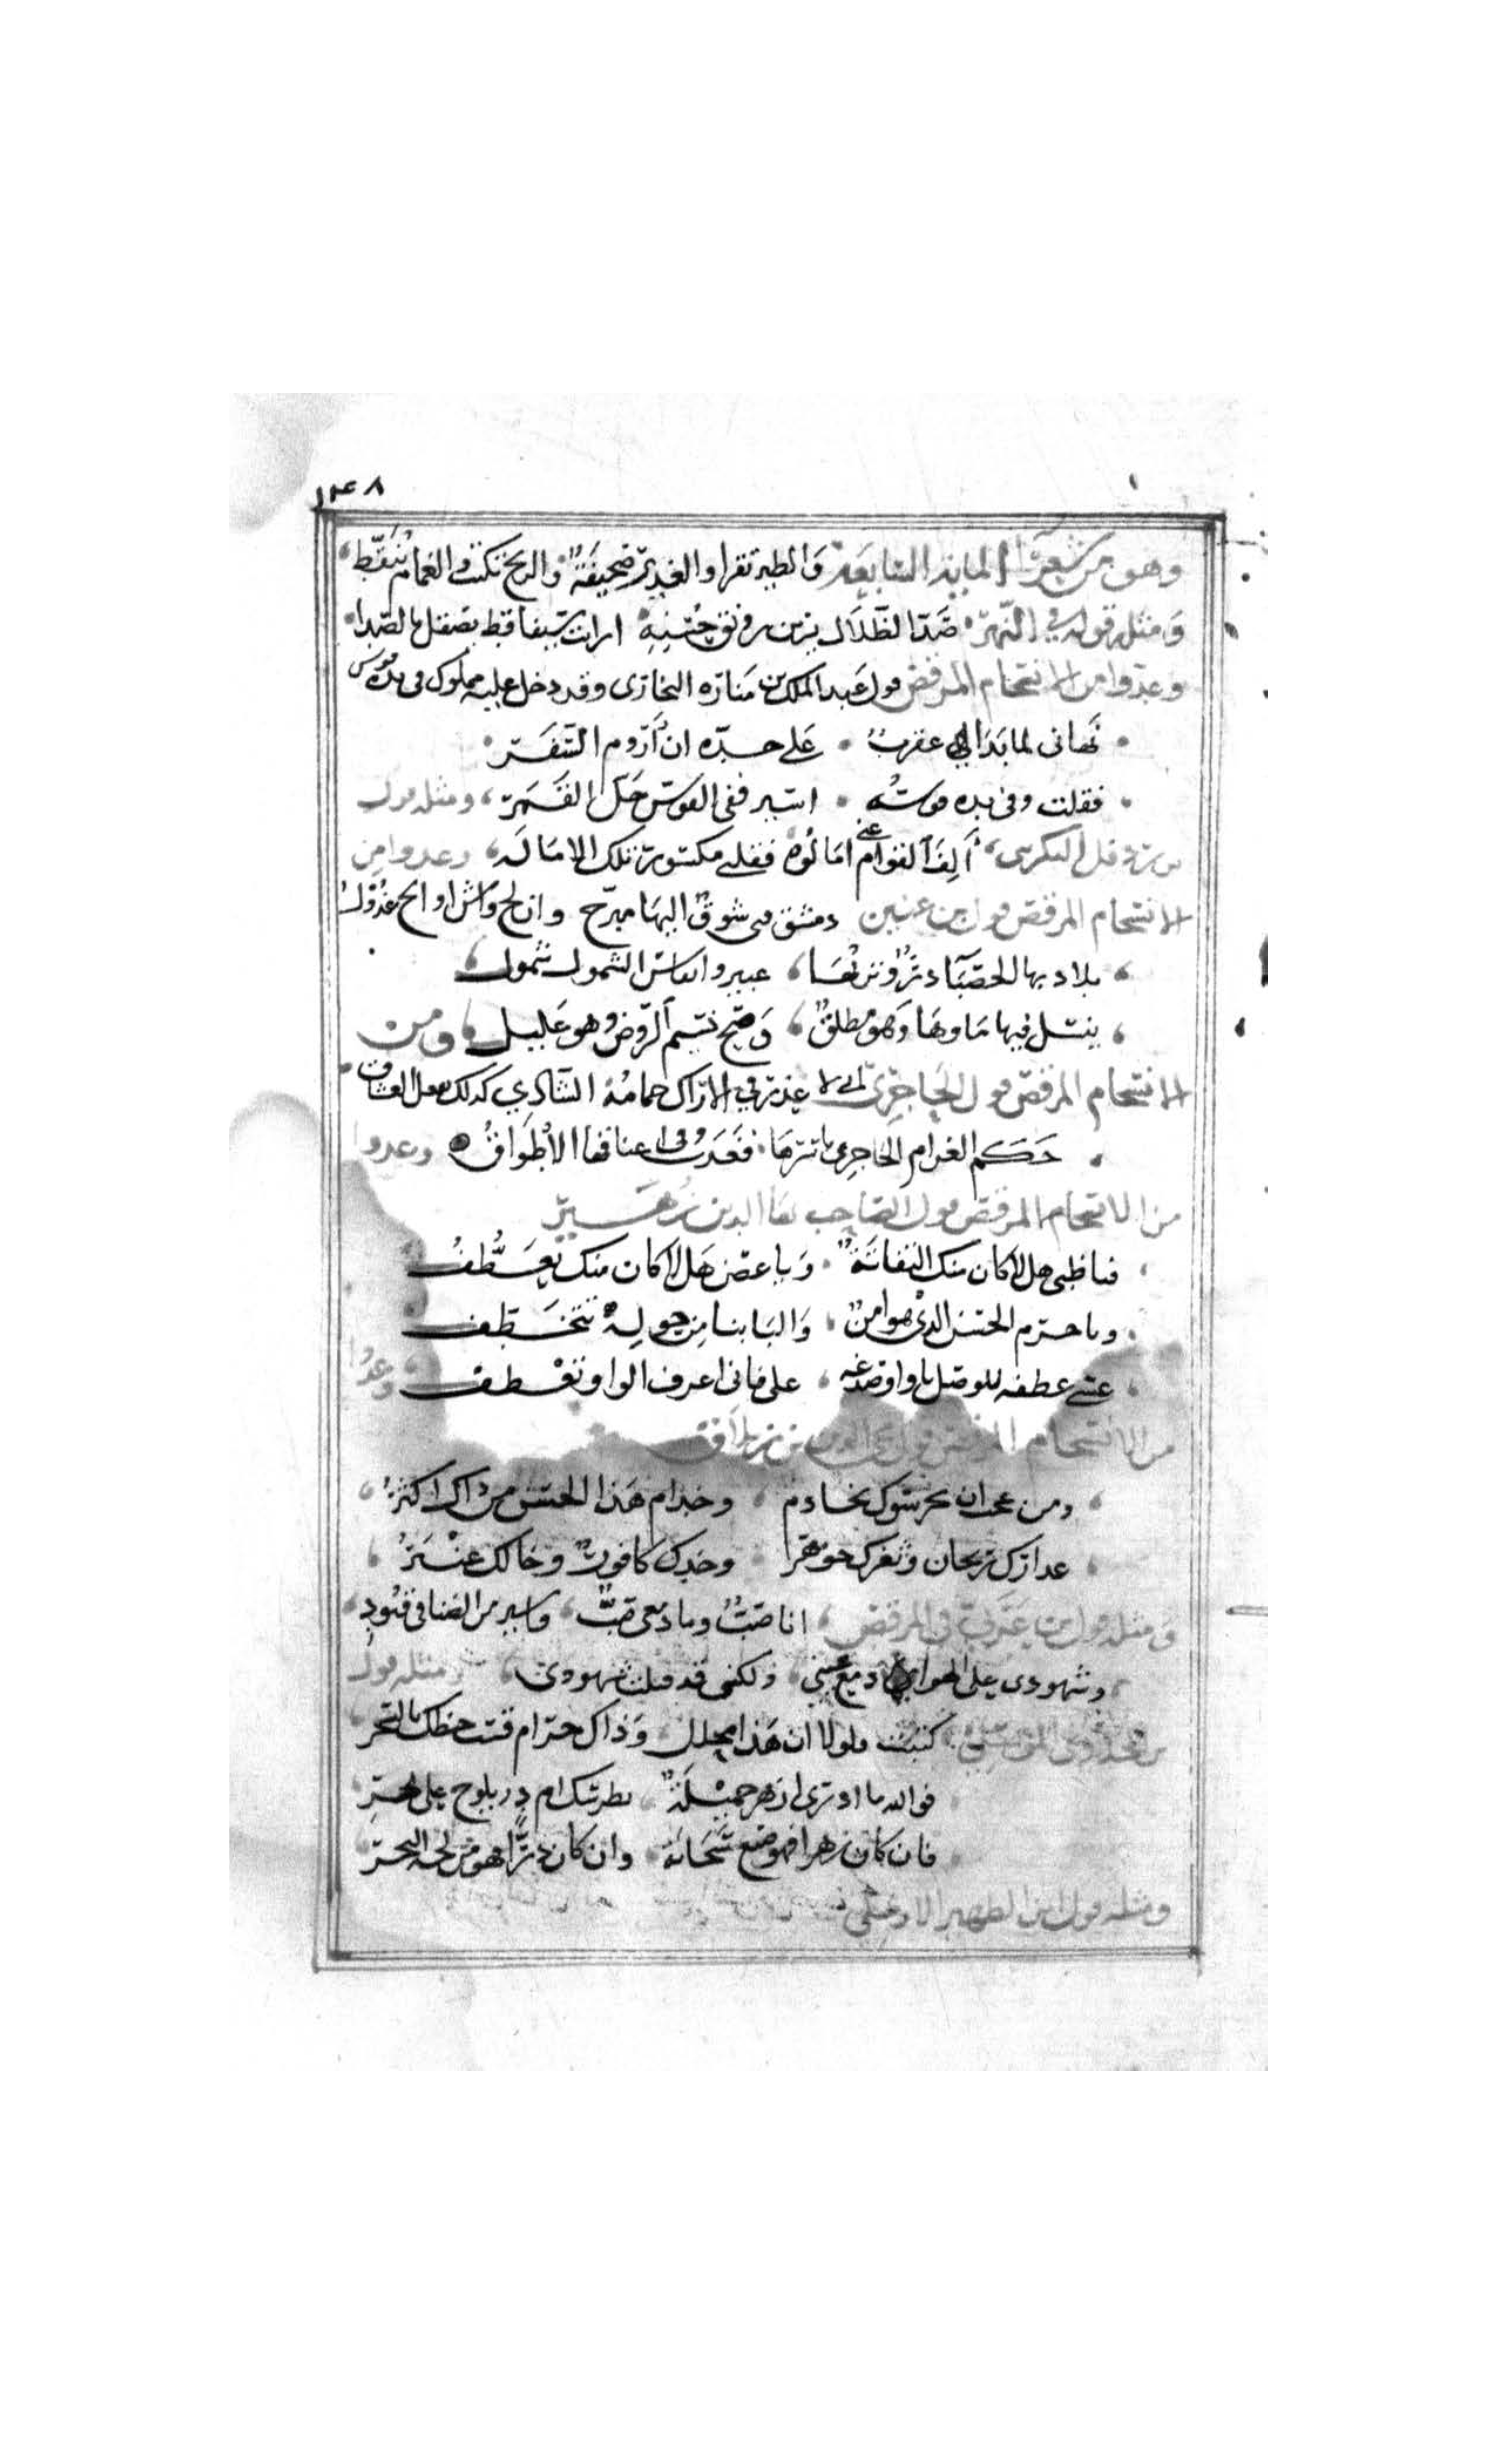 ١٤٨
وهو من شعرآ المايه السابعة والطير تقرا والغدير صحيفة والريح تكتب والغمام ينقط
ومثله قوله في النهر صدا الظلال يزين رونق حسنه ارايت سيفا قط يصقل بالصدا
وعدوا من الانسجام المرقص قول عبد الملك بن مناره النجازى وقد دخل عليه مملوك فى يده قوس
نهانى لما بدا لى عقرب على خده ان اروم السفر
فقلت وفى يده قوسه اسير ففى القوس حل القمر ومثله قول
البكرى الف القوام عنى امالوه فقلبى مكسور تلك الاماله وعدوا من
الانسجام المرقص قول بن عنين دمشق فى شوق اليها مبرح وان لج واش او الح عذول
بلاد بها الحصبآ در وتربها عبير وانفاس الشمول شمول
يتسلسل فيها ماوها وهو مطلق وصح نسيم الروض وهو عليل ومن
الانسجام المرقص قول الحاجري لا غدر فى الاراك حمامة الشادي كذلك يفعل العشاق
حكم الغرام الحاجري باسرها فغدت وفى اعناقها الاطواق وعدوا
من الانسجام المرقص قول الصاحب بها الدين زهير
فيا ظبى هلا كان منك التفاتة ويا غصن هلا كان منك تعطف
ويا حرم الحسن الذى هو امن والبابنا من حوله تتخطف
عسى عطفه للوصل يا واو صدغه على فانى اعرف الواو تعطف وعدوا
من الانسجام المرقص قول بن
ومن عجب ان يحرسوك بخادم وخدام هذا الحسن من ذاك اكثر
عذارك ريحان وثغرك جوهر وخدك كافور وخالك عنبر
ومثله قول بن عربى فى المرقص انا صب وما دمعى صب واسير من الضنا فى قيود
وشهودى على الهوى دمع عينى ولكنى قذفت شهودى ومثله قول
كتبت فلولا ان هذا محلل وذاك حرام قست خطك بالسحر
فوالله ما ادرى ازهر خميلة بطرسك ام در يلوح على نحر
فان كان زهرا فهو صنع سحابة وان كان درا فهو من لجة البحر
ومثله قول ابن الظهير الاربلى